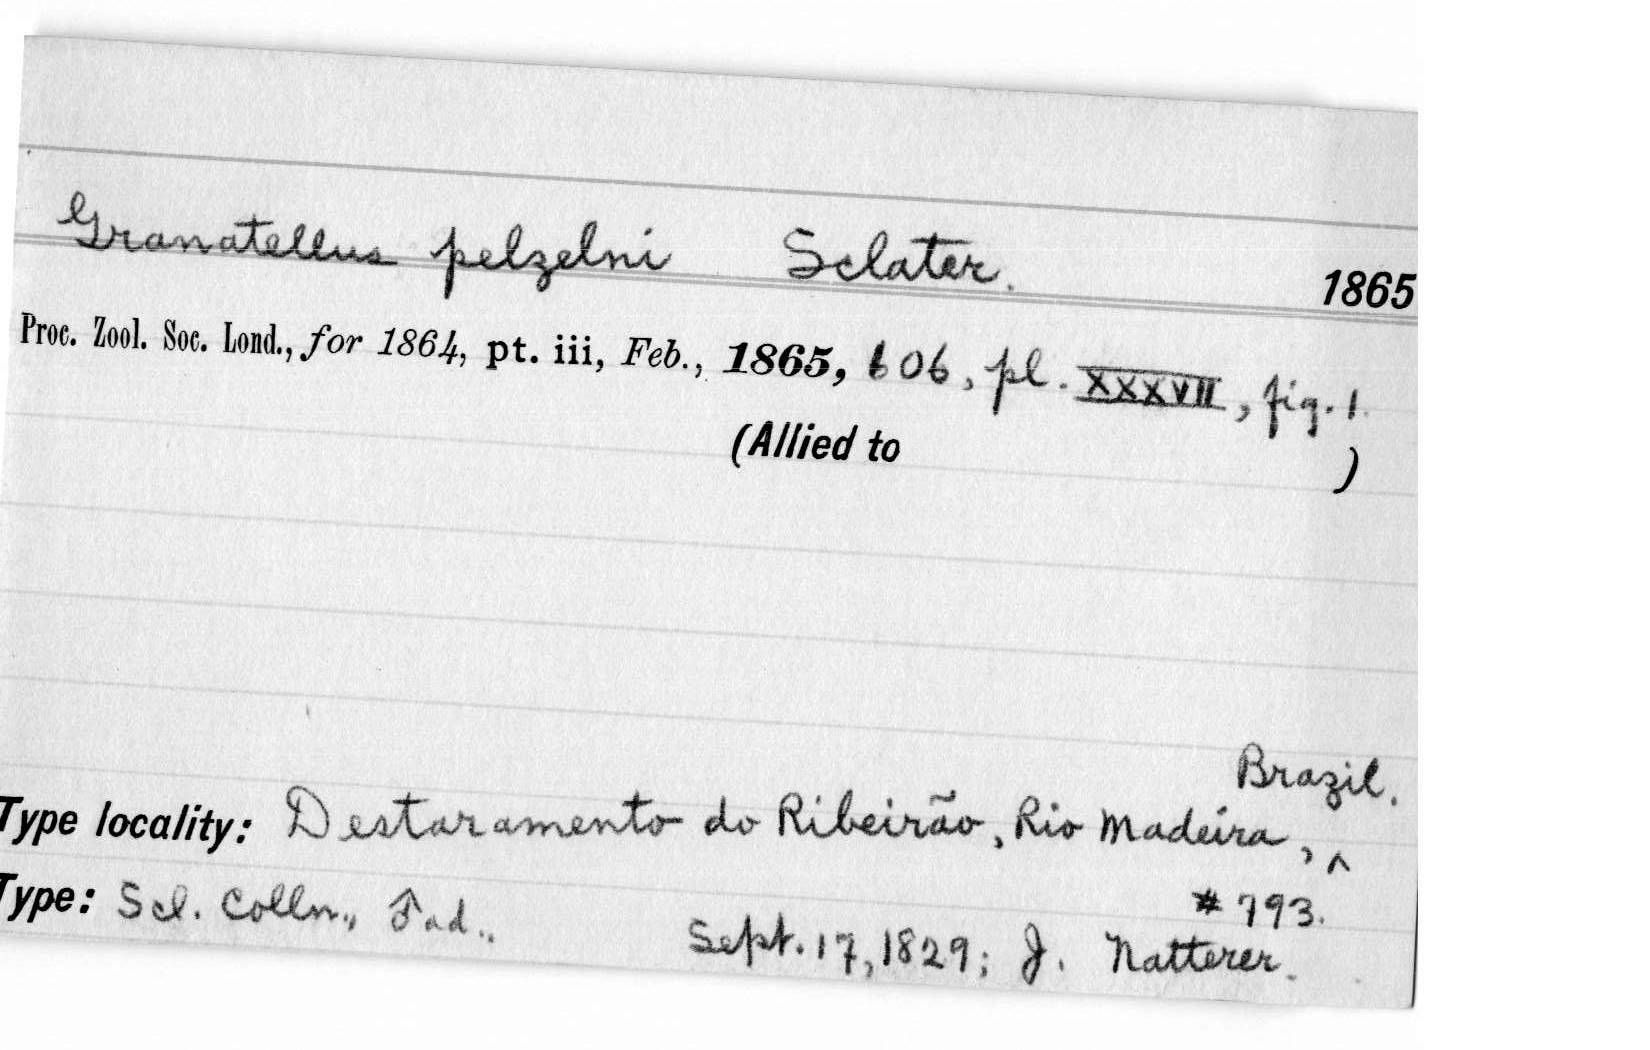 Granatellus pelzelni Sclater. 1865
Proc. Zool. Soc. Lond., for 1864, pt. iii, Feb., 1865, 606, pl. XXXVII, fig. 1.
(Allied to )
Brazil.
Type locality: Destaramento do Ribeirão, Rio Madeira, ^
Type: Scl. Colln., ♂ad.. #793.
Sept. 17, 1829; J. Natterer.